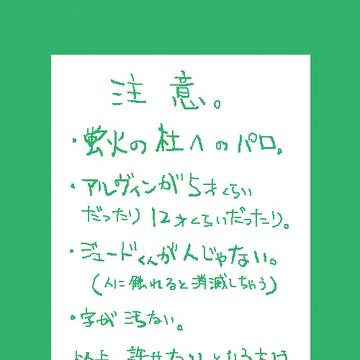 注意。
・蛍火の杜へのパロ。
・アルヴィンが5才くらい
だったり12才くらいだったり。
・ジュードくんが人じゃない。
(人に触れると消滅しちゃう)
・字が汚ない。
以上、許せた